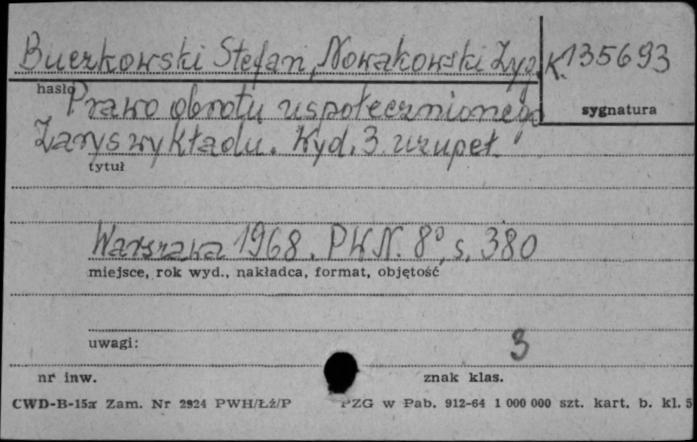 Buczkowski Stefan, Nowakowski Zyg. K. 135693
hasło
sygnatura
Prawo obrotu uspołecznionego
Zarys wykładu. Wyd. 3 uzupeł.
tytuł
Warszawa 1968. PWN. 8°, s. 380
miejsce, rok wyd., nakładca, format, objętość
uwagi:
3
nr inw.
znak klas.
CWD-B-15a Zam. Nr 2924 PWH/Łź/P PZG w Pab. 912-64 1 000 000 szt. kart. b. kl. 5